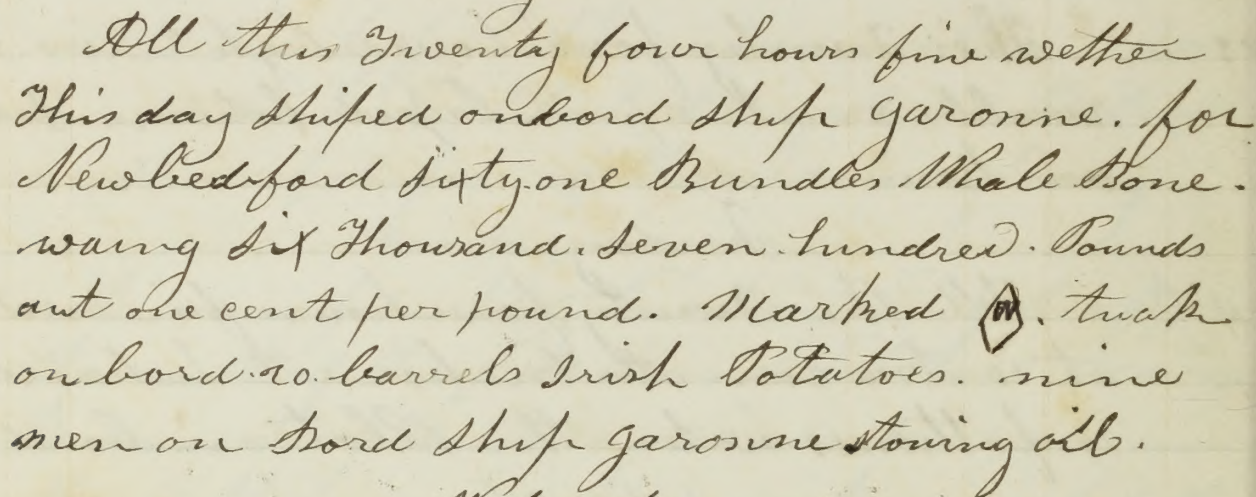 All this Twenty four hours fine wether
This day shiped onbord ship Garonne. for
Newbedford sixty one Bundles Whale Bone.
waing six Thousand. seven. hundred. Pounds
aut one cent per pound. Marked W. tuak
on bord. 20. barrels Irish Potatoes. nine
men on Bord ship Garonne stowing oil.